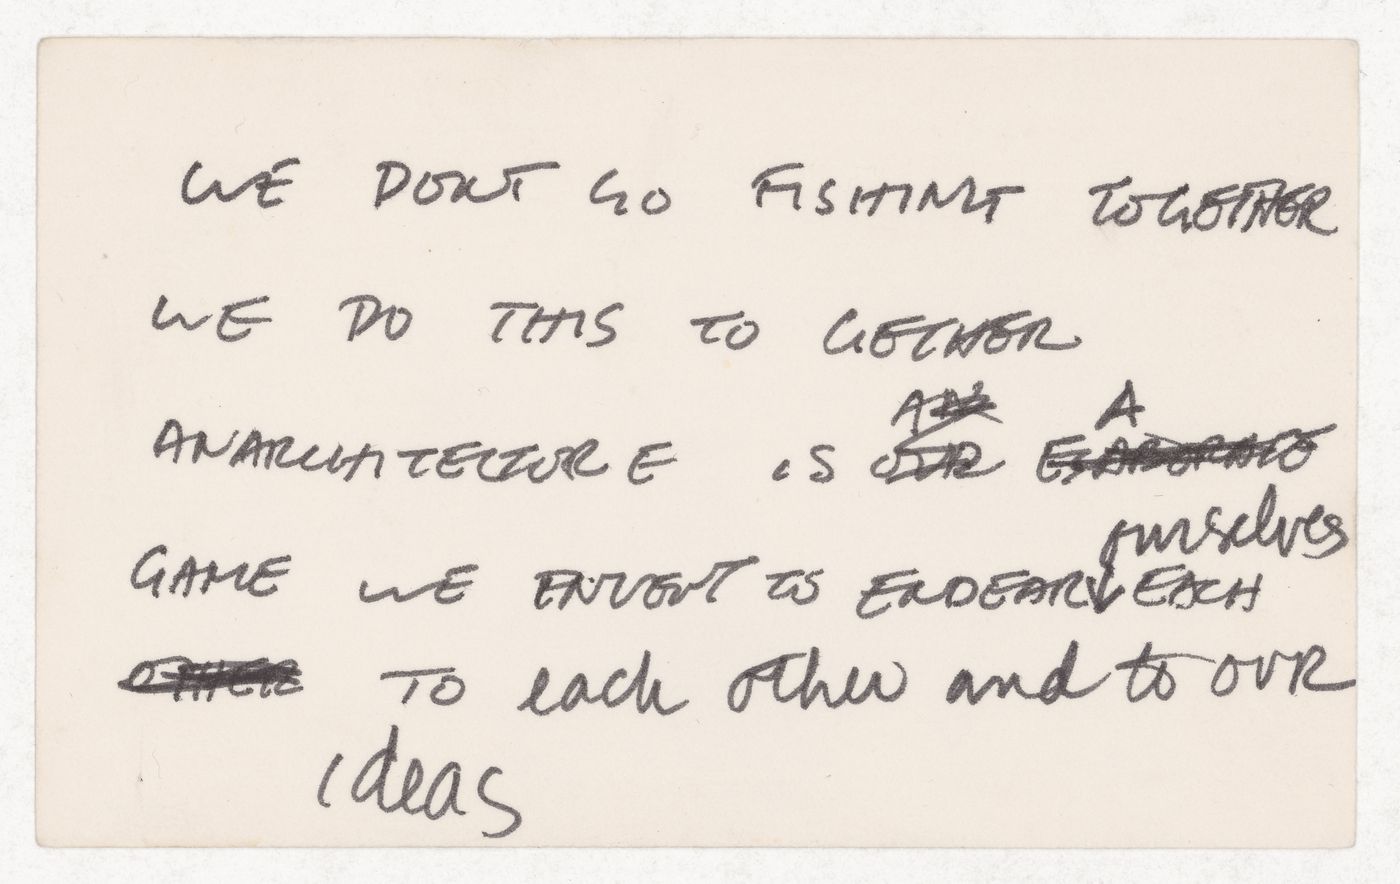 WE DONT GO FISHINT TOGETHER
WE DO THIS TO GETHER
A A
ANARCHITECTURE iS OUR ELABORATE
ourselves
GAME WE ENVENT TO ENDEAR EACH
OTHER TO each other and to OUR
ideas